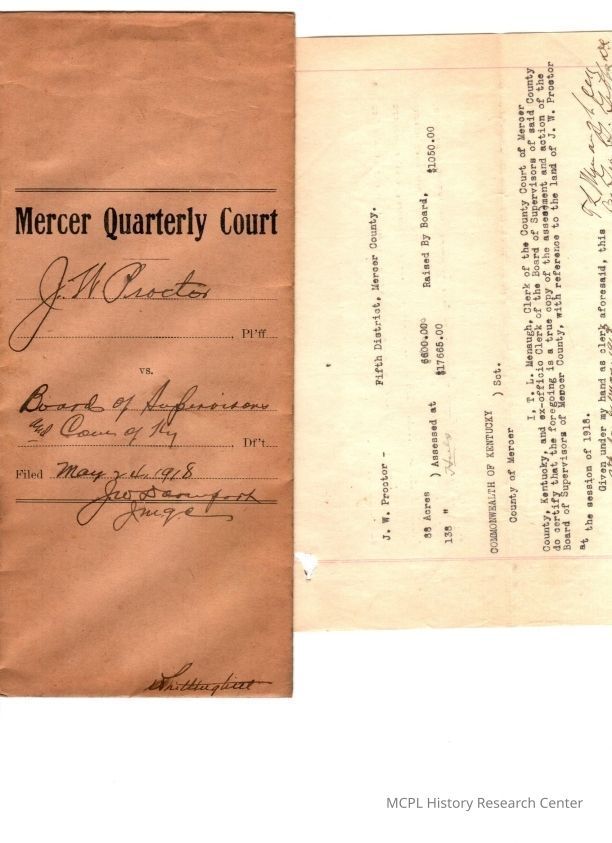 Mercer Quarterly Court
J. W. Proctor
Pl'ff
vs.
Board of Supervisors
and Com of Ky
Df't.
Filed May 24, 1918
Judge
J. W. Proctor - Fifth District, Mercer County.
88 Acres ) Assessed at 6600.00 Raised By Board, $1050.00
138 " $17665.00
COMMONWEALTH OF KENTUCKY ) Sct.
County of Mercer
I, T. L. Menaugh, Clerk of the County Court of Mercer
County, Kentucky, and ex-officio Clerk of the Board of Supervisors of said County
do certify that the foregoing is a true copy of the assessment and action of the
Board of Supervisors of Mercer County, with reference to the land of J. W. Proctor
at the session of 1918.
Given under my hand as clerk aforesaid, this
T L Menaugh Clerk
MCPL History Research Center